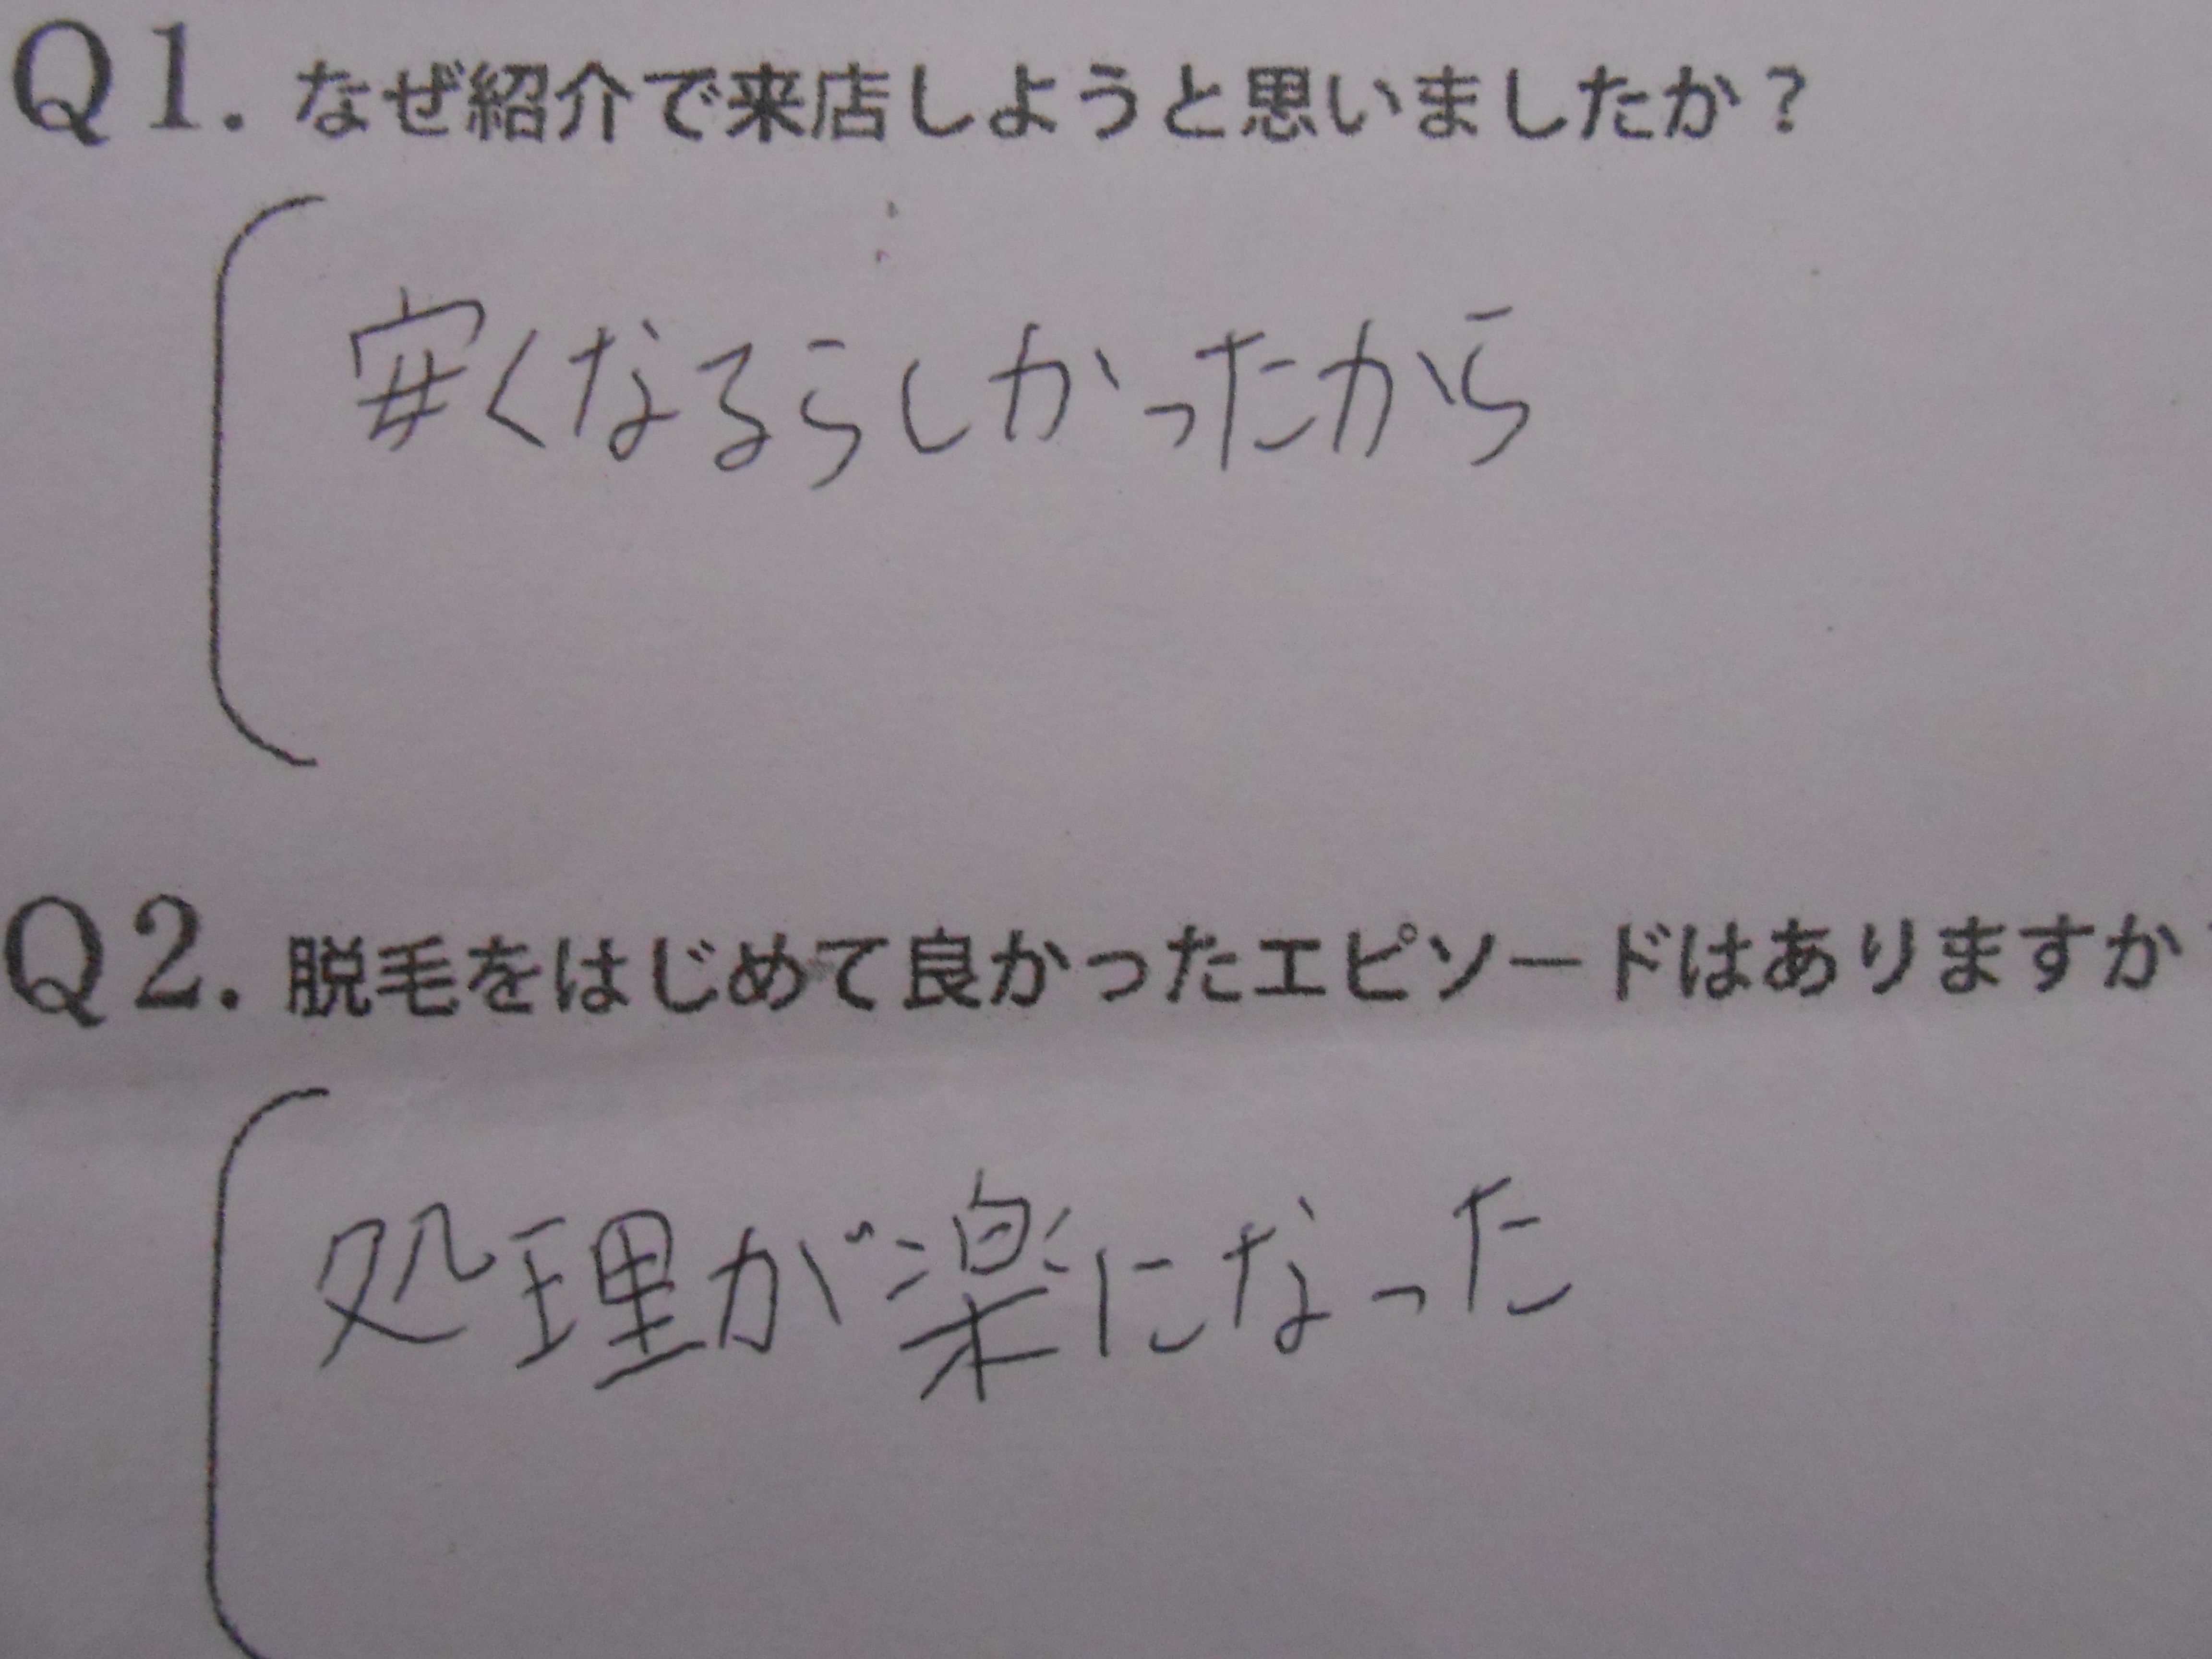 Q1. なぜ紹介で来店しようと思いましたか？
安くなるらしかったから
Q2. 脱毛をはじめて良かったエピソードはありますか
処理が楽になった